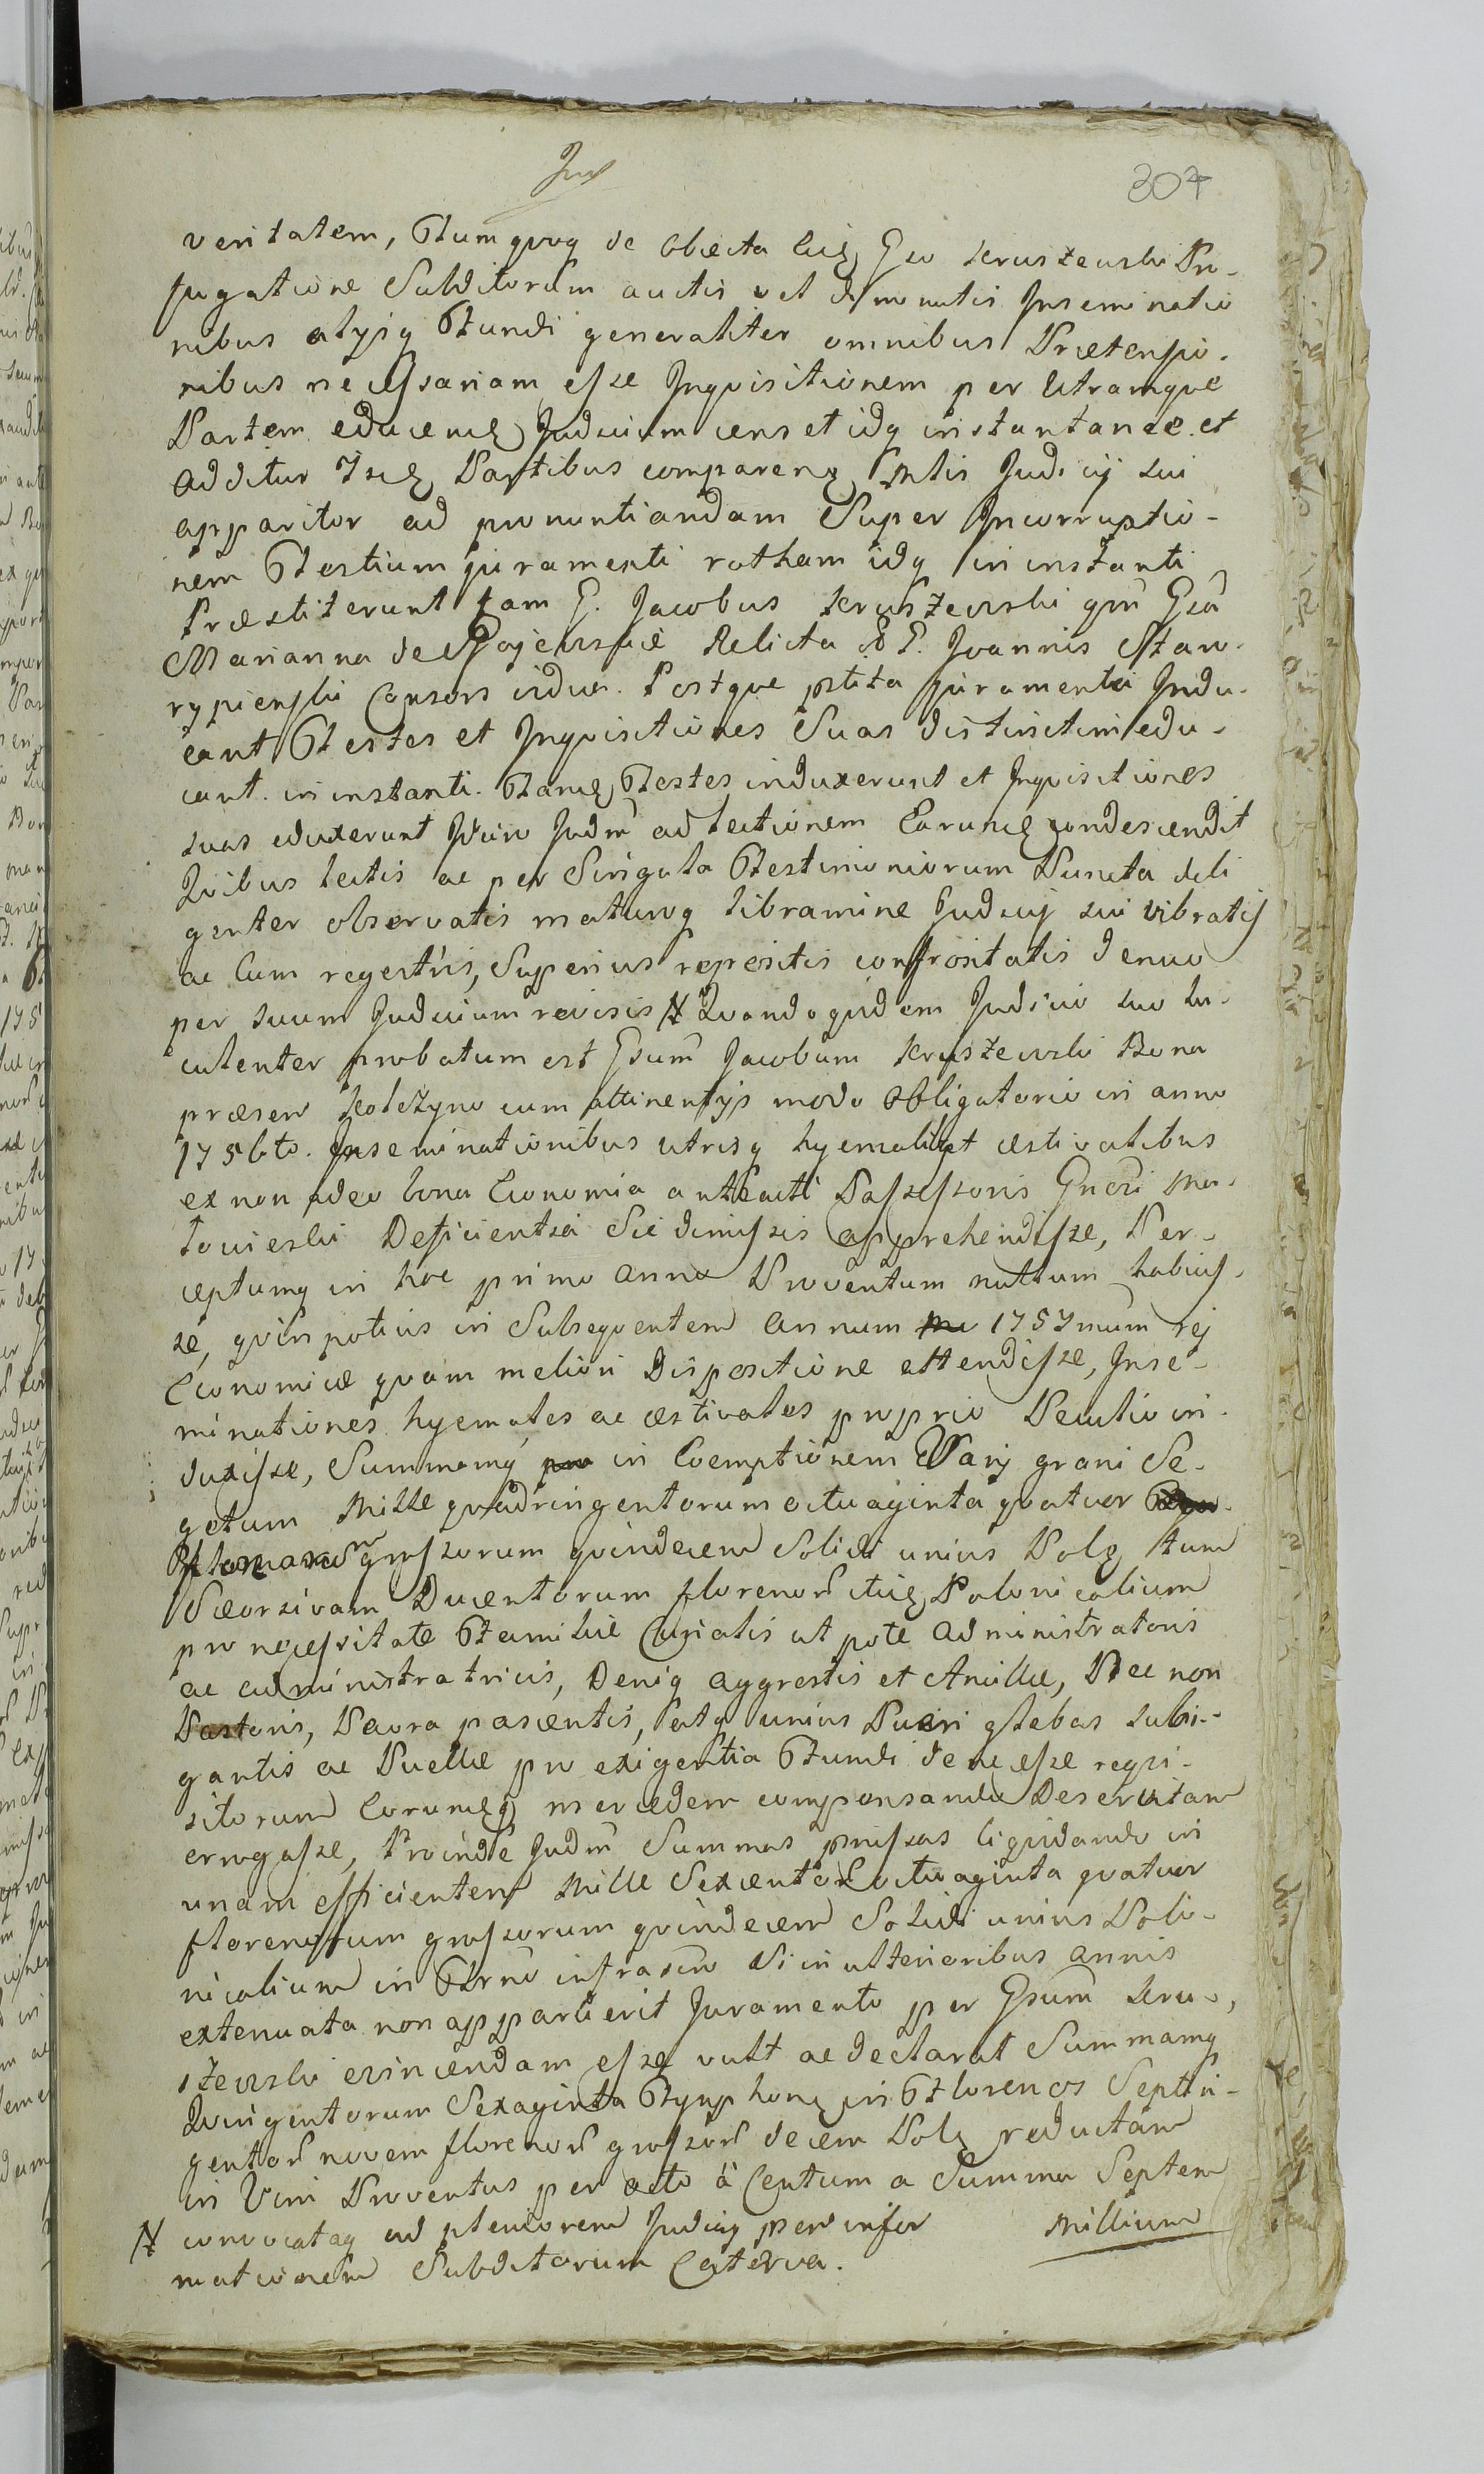 Jux
307
veritatem, Tumqvoq de obiecta eidę Gso Kruszewski Pro-
fugatione Subditorum auctis vel diminutis Inseminatio
nibus alysq Fundi generaliter omnibus Prætensio-
nibus necessariam esse Inqvisitionem per Utramque
Partem educendę Judicium censet idq instantanee et
additur Isdę Partibus comparenę Mtis Judicij sui
apparitor ad pronuntiandam Super Incorruptio-
nem Testium juramenti rotham idq in instanti
Præstiterunt tam G. Jacobus Kruszewski qm Gsa
Marianna de Relicta Joannis Staw-
rypienski Consors vidua. Postqve pstita juramenta Indu-
cant Testes et Inqvisitiones Suas distinctim edu-
cant in instanti. Tandę Testes induxerunt et Inqvisitiones
suas eduxerunt Judm ad lectionem Earundę condescendit
Qvibus lectis ac per Singula Testimoniorum Puncta dili
genter observatis maturoq libramine Judicij sui vibratis
ac Cum regestris, Superius repositis confrontatis denuo
per Suum Judicium revisis # Qvandoqvidem Judicio suo lu-
culenter probatum est Gsum Jacobum Kruszewski Bona
præsen Kotczyno cum attinentijs modo Obligatorio in anno
1756to. Inseminationibus utrisq hyemalib et æstivalibus
ex non adeo bona Economia anteacti Possessoris Gnosi Ma-
towieski Deficientia Sic dimissis apprehendisse, Per-
ceptumq in hoc primo anno Proventum nullum habuis-
se, qvin potius in Subseqventem annum 1757mum rej
Economicæ qvam meliori Dispositione attendisse, Inse-
minationes hyemales ac æstivales proprio Peculio in-
duxisse, Summamq in Coemptionem Varij grani Se-
getum Mille qvadringentorum octuaginta qvatuor
florenorum grossorum qvindecem Solidi unius Polę tum
Seorsivam Ducentorum florenor itidę Polonicalium
pro necessitate Familiæ Curialis utpote administratoris
ac administratricis, Deniq aggrestis et Ancillæ, Nec non
Pastoris, Pecora pascentis, atq unius Pueri glebas subi-
gantis ac Puellæ pro exigentia Fundi de necesse reqvi-
sitorum Eorundęq mercedem compensando Deservitam
errogasse, Proinde Judm Summas pmissas liqvidando in
unam efficientem Mille Sexcentor octuaginta qvatuor
florenorum grossorum qvindecem Solidi unius Polo-
nicalium in Trno infrascro Si in ulterioribus annis
extenuata non apparuerit Juramento per Gsum Kru-
szewski evincendam esse vult ac declarat Summamq
Qvingentorum Sexaginta Tynphonę in Florenos Septin-
gentor novem florenor grossor decem Polę reductam
in Vim Proventus per octo a Centum a Summa Septem
Millium
# convocataq ad pleniorem Judicij psen infor
mationem Subditorum Caterva.